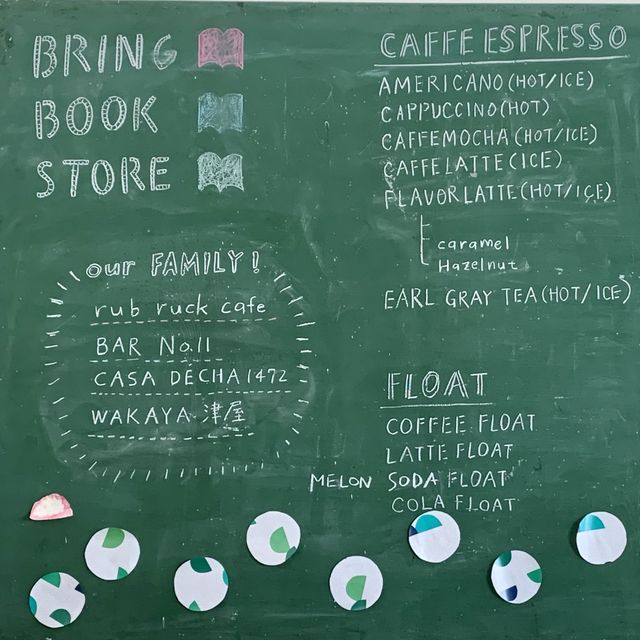 BRING
BOOK
STORE
our FAMILY!
rub ruck cafe
BAR No.11
CASA DECHA 1472
WAKAYA 津屋
CAFFE ESPRESSO
AMERICANO(HOT/ICE)
CAPPUCCINO(HOT)
CAFFEMOCHA(HOT/ICE)
CAFFELATTE(ICE)
FLAVORLATTE(HOT/ICE)
caramel
Hazelnut
EARL GRAY TEA(HOT/ICE)
FLOAT
COFFEE FLOAT
LATTE FLOAT
MELON SODA FLOAT
COLA FLOAT